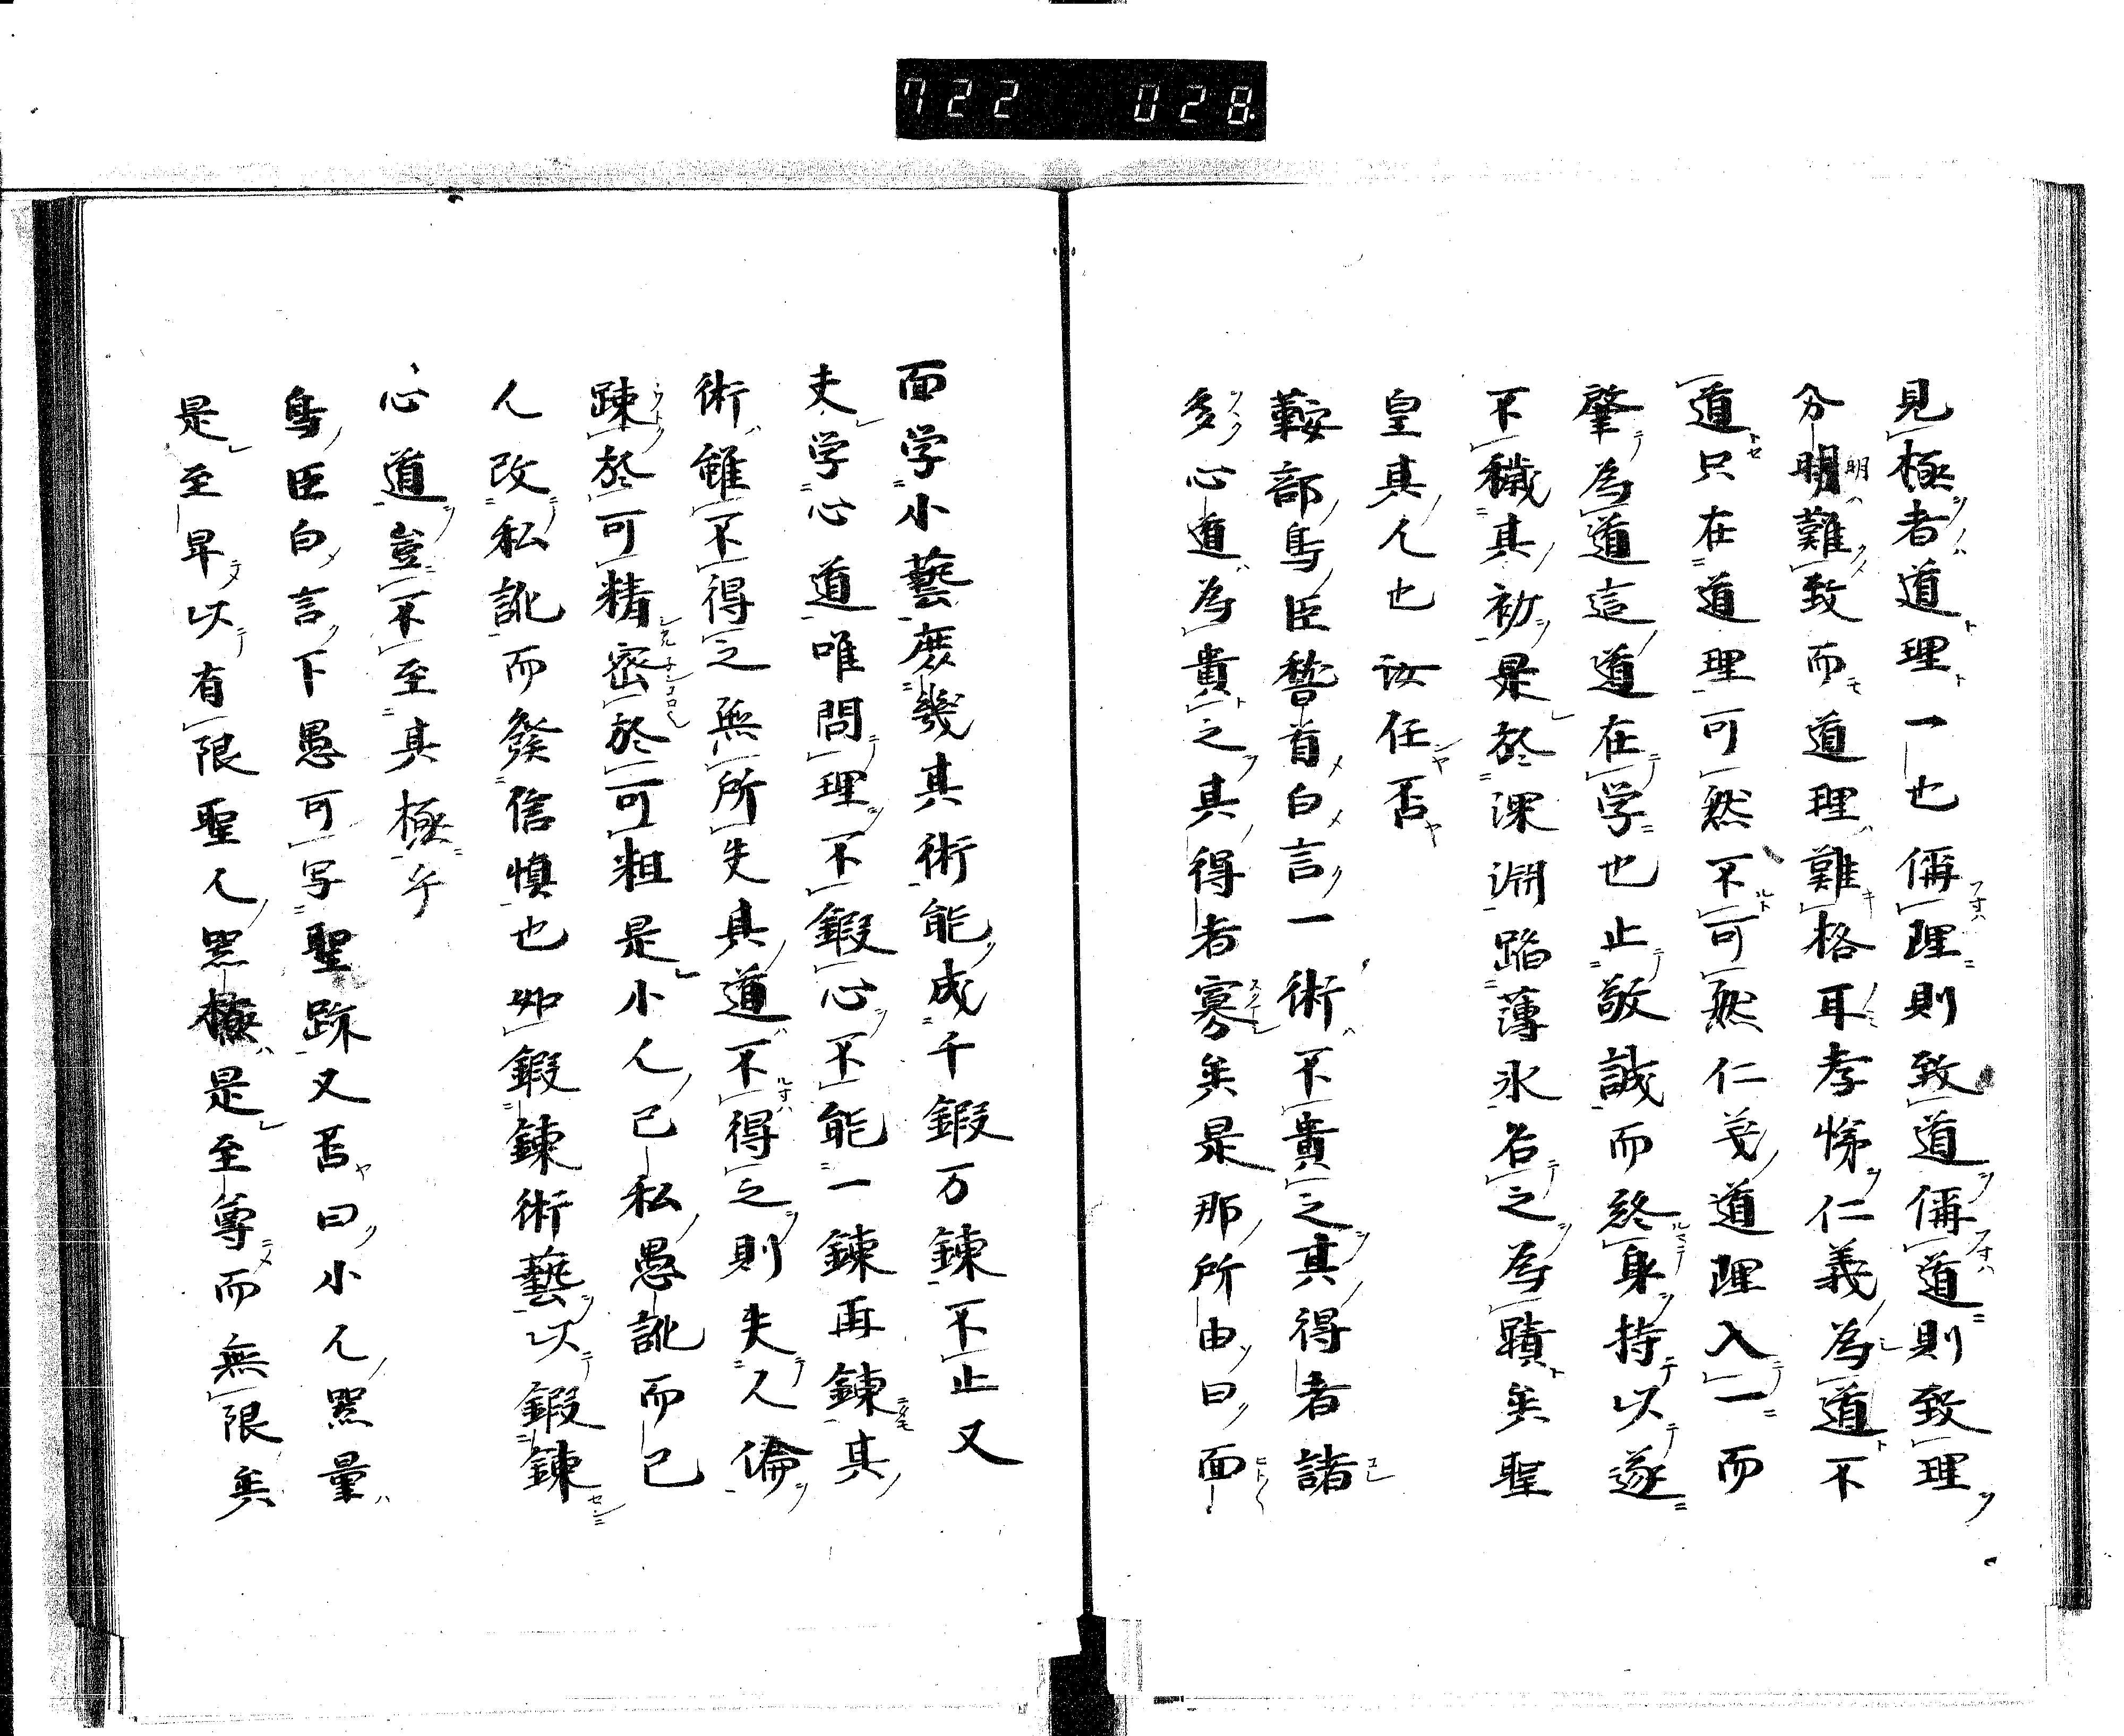 722 028
見極者道理一也偁理則致道偁道則致理
分明難致而道理難格耳孝悌仁義為道不
道只在道理可然不可然仁义道理入一而
肇為道這道在学也止敬誠而終身持以遂
不穢其初是於深淵蹈薄氷名之為蹟矣聖
皇真人也汝任否
鞍部鳥臣稽首白言一術不貴之其得者諸
多心道為貴之其得者寡矣是那所由曰面
面学小藝庶幾其術能成千鍛万錬不止又
夫学心道唯問理不鍛心不能一錬再錬其
術雖不得之無所失其道不得之則失人倫
踈於可精密於可粗是小人己私愚訛而已
人改私訛而發信慎也如鍛錬術藝以鍛錬
心道豈不至其極乎
鳥臣白言下愚可写聖跡又否曰小人器量
是至卑以有限聖人器極是至尊而無限矣